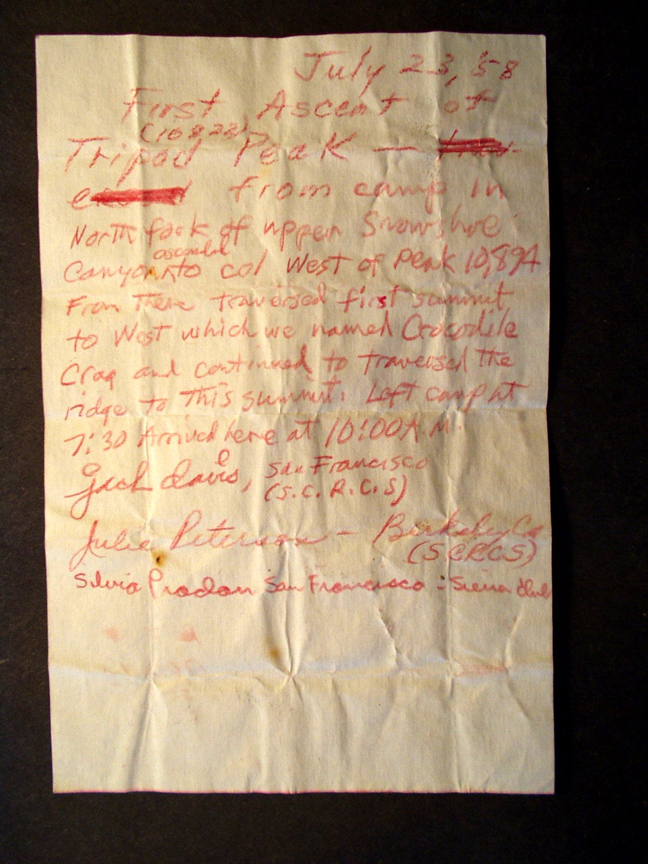 July 23, '58
First Ascent of
(10822)
Tripod Peak —
from camp in
North fork of upper Snowshoe
ascended
Canyon to col West of Peak 10,894
From There traversed first summit
to West which we named Crocodile
Crag and continued to traversed the
ridge to This summit. Left camp at
7:30 Arrived here at 10:00 A.M.
Jack Davis, San Francisco
(S.C.R.C.S)
Julie Peterson — Berkeley Ca
(SCRCS)
Silvia Prodan San Francisco - Sierra Club